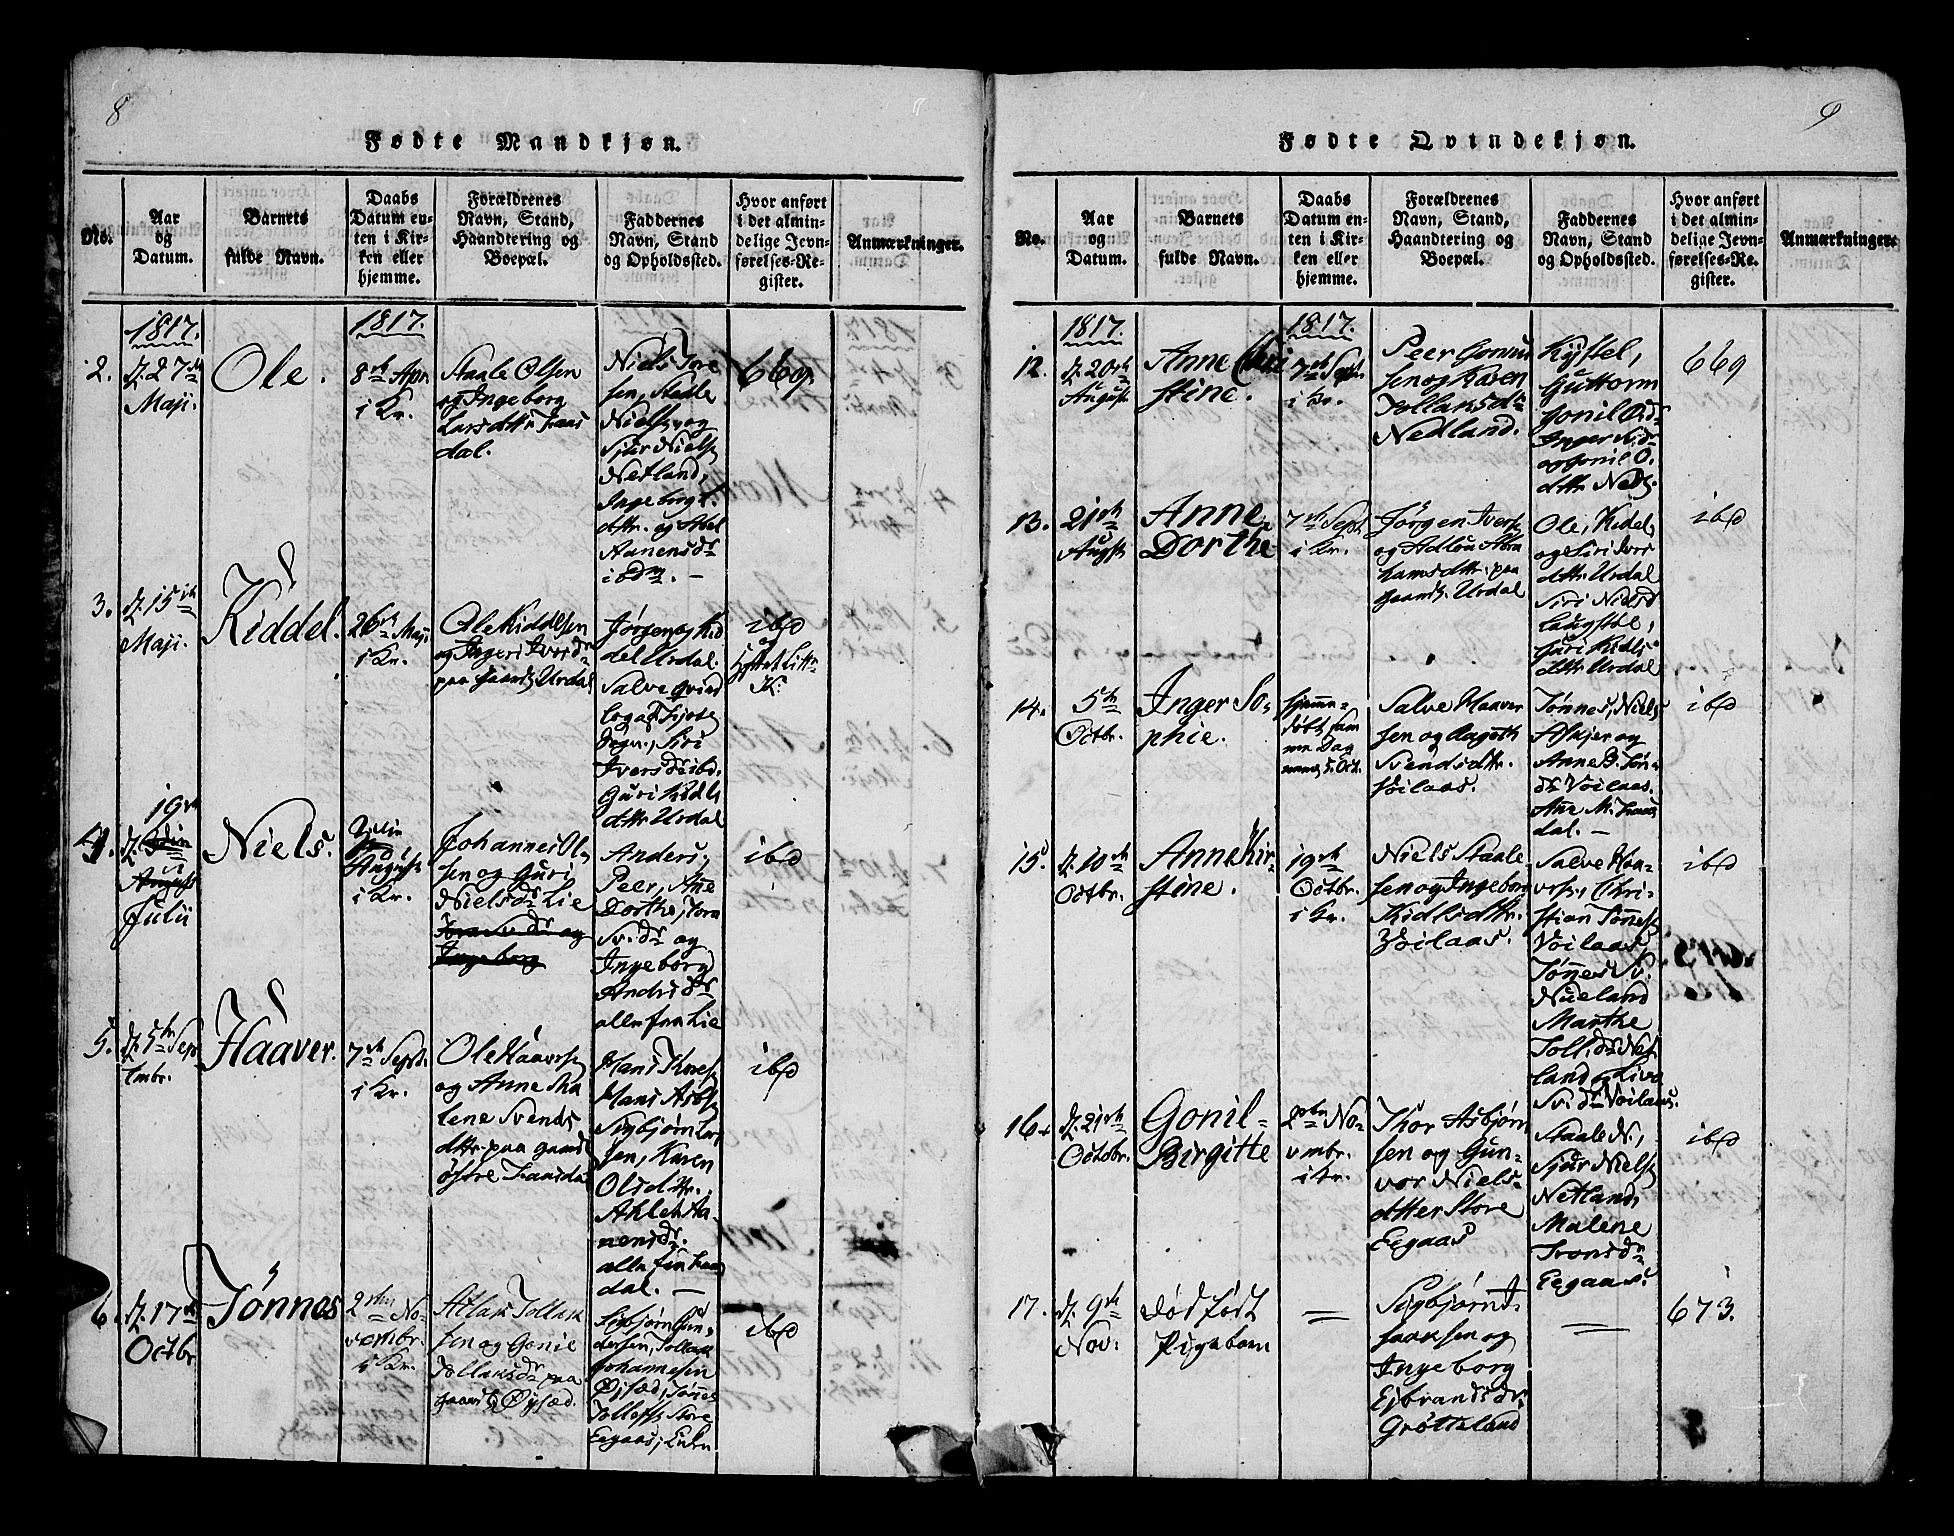 8
Fødte Mandkjøn.
No.
Aar
og
Datum.
Barnets
fulde Navn.
Daabs
Datum en-
ten i Kir-
ken eller
hjemme.
Forældrenes
Navn, Stand,
Haandtering og
Boepæl.
Faddernes
Navn, Stand
og Opholdssted.
Hvor anført
i det almin-
delige Jevn-
førelses-Re-
gister.
Anmærkninger.
1817.
1817.
2.
d. 27
Maji.
Ole.
8de Apr.
i Kr.
Staale Olsen
og Ingeborg
Larsdttr
dal.
Niels Tore
sen, Staale
Niels, og
Sjur Niels
Netland,
Ingeborg
dttr. og Abel
Aanensdr
ibdm. —
669.
3.
d. 15
Maji.
Kiddel.
26 Maji
i Kr.
Ole Kiddelsen
og Ingeri Iversdr
paa Urdal
Jørgen og Kid
del Urdal.
Salve Qvind
log
Siri
Iversdr ibd.
Guri Kidels
dttr Urdal
ibd
Litr
K:
4.
19
d.
Julii
Niels.
August
i Kr.
Johannes Ol-
sen og Guri
Nielsdr Lie
Ingeborg
Anders,
Peer, Ane
Dorthe, Torn
Sv. dr og
Ingeborg
Andrisdr
alle fra Lie
ibd
5.
d. 5te Sep
tmbr.
Haaver.
7de Septr
i Kr.
Ole Haavors
og Anne Ma
lene Svends
dttr. paa gaard
østre Fransdal
Hans Tores
Hans Asbs
Sigbjørn Lar
sen, Karen
Olsdttr.
Ahlet Aa-
nensdr.
alle
dal. —
ibd
6.
d. 17de
Octbr.
Tønnes
2den No-
vembr.
i Kr.
Atlak Tollak
sen og Gonil
Tollaksdr paa
gaard Øysæd.
Sigbjørn Gun-
dersen, Tollak
Johannesen
Øysæd, Tønnes
Tollefs, Store
Eegaas,
ibd
9
Fødte Qvindekjøn.
No.
Aar
og
Datum.
Barnets
fulde Navn.
Daabs
Datum en-
ten i Kir-
ken eller
hjemme.
Forældrenes
Navn, Stand,
Haandtering og
Boepæl.
Faddernes
Navn, Stand
og Opholdssted.
Hvor anført
i det almin-
delige Jevn-
førelses-Re-
gister.
Anmærkninger.
1817.
1817.
12.
d. 20de
August
Anne Chri
stine.
7de Septr
i Kr.
Peer Gonvor
sen og Karen
Tollaksdr
Nedland.
Kystel,
Guttorm
Gonil
Inger Nidr
og Gonil O.
dttr Neds.
669
13.
21de
August
Anne
Dorthe
7de Sept
i Kr.
Jørgen Ivers
og Adlou Abra
hamsdttr. paa
gaard Urdal
Ole, Kidel,
og Siri Iver
dttr. Urdal
Siri Nielsd
Laugstøl,
Guri Kidels
dttr Urdal
ibd
14.
5te
Octbr.
Inger So-
phie.
hjemme-
døbt sam
me Dag
5. Oct.
Salve Haaver
sen og Aagoth
Svendsdttr.
Voilaas.
Tønnes, Niels
Askjer og
Anne S. Tøn-
dr Voilaas.
Ane M.
dal. —
ibd
15.
d. 10de
Octbr.
Anne Kir-
stine.
19de
Octbr.
i Kr.
Niels Staale-
sen og Ingeborg
Kidlsdttr.
Voilaas.
Salve Haa-
vors, Chri-
stian Tønnes
Voilaas,
Tønnes Sv.
Nueland
Marthe
Toll. dr Net
land og Liva
Sv. dr Voilaas.
ibd
16.
d. 21de
Octobr.
Gonil-
Birgitte
2den No-
vmbr.
i Kr.
Thor Asbjørn
sen og Gun-
vor Niels-
datter Store
Eegaas
Staale N.,
Sjur Niels
Netland,
Malene
Tronsdr
Eegaas.
ibd
17.
d. 9de
Nov.
Dødfødt
Pigebarn
=
Sigbjørn I-
saaksen og
Ingeborg
Ejbrandsdr
Grøtteland
=
673.